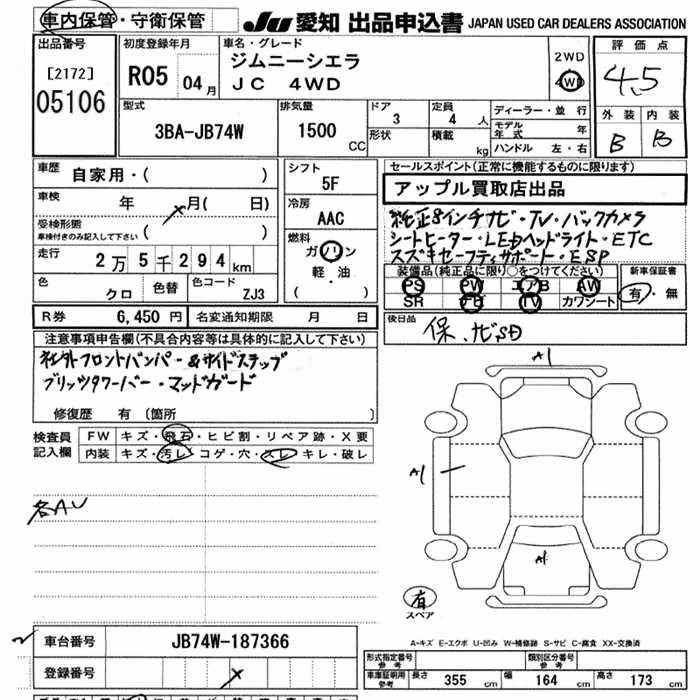 車内保管・守衛保管 JU 愛知 出品申込書 JAPAN USED CAR DEALERS ASSOCIATION
出品番号
[2172]
05106
初度登録年月
R05 04月
車名・グレード
ジムニーシエラ
JC 4WD
2WD
4WD
評価点
4.5
外装 内装
B B
型式
3BA-JB74W
排気量
1500 CC
ドア 3
形状
定員 4 人
積載 kg
ディーラー・並行
モデル年式 年
ハンドル 左・右
車歴 自家用・( )
車検 年 月( 日)
受検形態
車検付きのみ記入して下さい ( )
走行 2万5千294km
色 クロ 色替 色コード ZJ3
シフト
5F
冷房
AAC
燃料
ガソリン
軽・油
( )
セールスポイント(正常に機能するものに限ります)
アップル買取店出品
純正8インチナビ・TV・バックカメラ
シートヒーター・LEDヘッドライト・ETC
スズキセーフティサポート・ESP
装備品(純正品に限り○をつけてください)
PS PW エアB AW
SR TV カワシート
新車保証書
有・無
R券 6,450円 名変通知期限 月 日
後日品
保、ナビSD
注意事項申告欄(不具合内容等は具体的に記入して下さい)
社外フロントバンパー&サイドステップ
ブリッツタワーバー・マッドガード
修復歴 有 (箇所 )
検査員記入欄
FW キズ・飛石・ヒビ割・リペア跡・X要
内装 キズ・汚レ・コゲ・穴・スレ・キレ・破レ
各AU
A1
A1
A1
有
スペア
A-キズ E-エクボ U-凹み W-補修跡 S-サビ C-腐食 XX-交換済
車台番号 JB74W-187366
登録番号
形式指定番号 参考
類別区分番号 参考
車庫証明用 参考 長さ 355 cm 幅 164 cm 高さ 173 cm